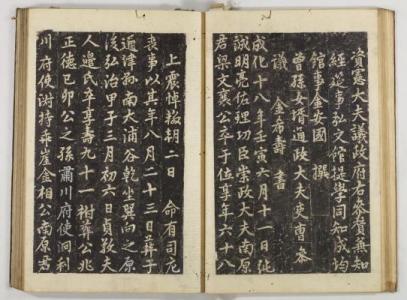 資憲大夫議政府右參贊兼知
經筵事弘文館提學同知成均
館事金安國　撰
曾孫女壻通政大夫吏曹參
議　金希壽　書
成化十八年壬寅六月十一日純
誠明亮佐理功臣崇政大夫南原
君梁文襄公卒于位享年六十八
上震悼輟朝二日　命有司庀
喪事以其年八月二十三日葬于
通津縣南大浦谷乾坐巽向之原
後弘治甲子三月初六日貞敬夫
人邊氏卒享壽九十一祔葬公兆
正德己卯公之孫肅川府使泂利
川府使澍持乖崖金相公南原君